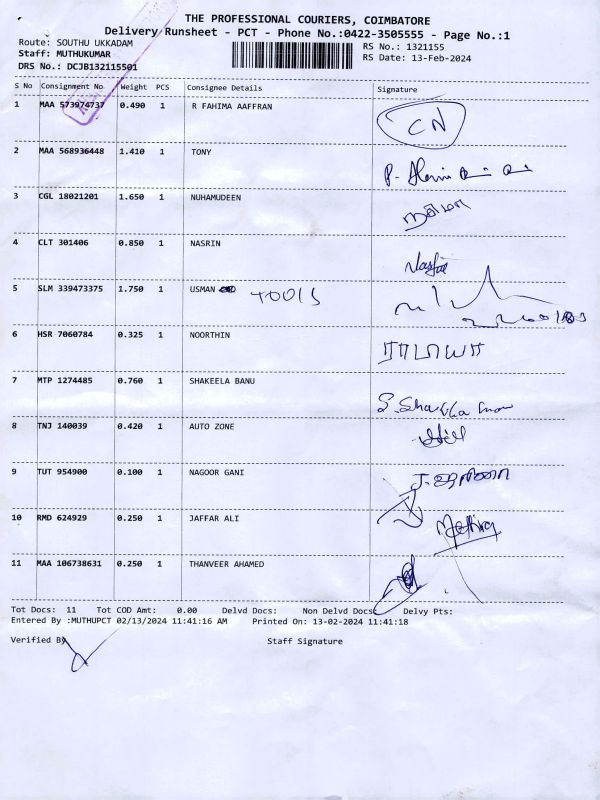 THE PROFESSIONAL COURIERS, COIMBATORE
Delivery Runsheet - PCT - Phone No.:0422-3505555 - Page No.:1
Route: SOUTHU UKKADAM
RS No.: 1321155
Staff: MUTHUKUMAR
RS Date: 13-Feb-2024
DRS No.: DCJB132115501
S No Consignment No Weight PCS Consignee Details Signature
1 MAA 573974737 0.490 1 R FAHIMA AAFFRAN CN
2 MAA 568936448 1.410 1 TONY
3 CGL 18021201 1.650 1 NUHAMUDEEN
4 CLT 301406 0.850 1 NASRIN
5 SLM 339473375 1.750 1 USMAN TOOLS
6 HSR 7060784 0.325 1 NOORTHIN
7 MTP 1274485 0.760 1 SHAKEELA BANU
8 TNJ 140039 0.420 1 AUTO ZONE
9 TUT 954900 0.100 1 NAGOOR GANI
10 RMD 624929 0.250 1 JAFFAR ALI
11 MAA 106738631 0.250 1 THANVEER AHAMED
Tot Docs: 11 Tot COD Amt: 0.00 Delvd Docs: Non Delvd Docs: Delvy Pts:
Entered By :MUTHUPCT 02/13/2024 11:41:16 AM Printed On: 13-02-2024 11:41:18
Verified By Staff Signature